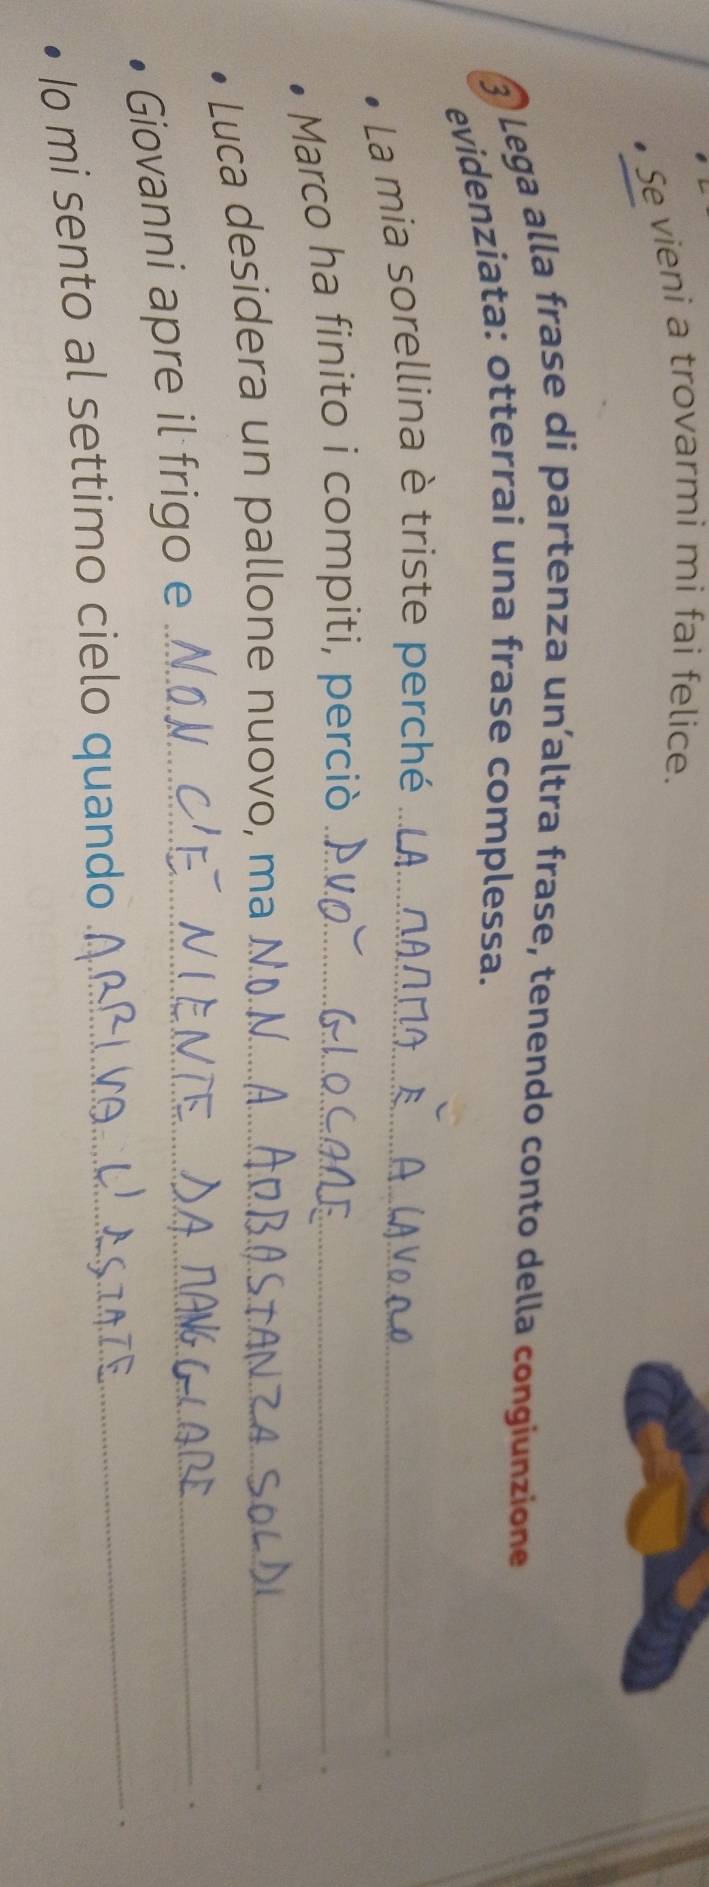 • Se vieni a trovarmi mi fai felice.
3 Lega alla frase di partenza un'altra frase, tenendo conto della congiunzione
evidenziata: otterrai una frase complessa.
• La mia sorellina è triste perché LA MAMMA È A LAVORO.
• Marco ha finito i compiti, perciò PUÒ GIOCARE.
• Luca desidera un pallone nuovo, ma NON A ABBASTANZA SOLDI.
• Giovanni apre il frigo e NON C'È NIENTE DA MANGGIARE.
• Io mi sento al settimo cielo quando ARRIVA L'ESTATE.